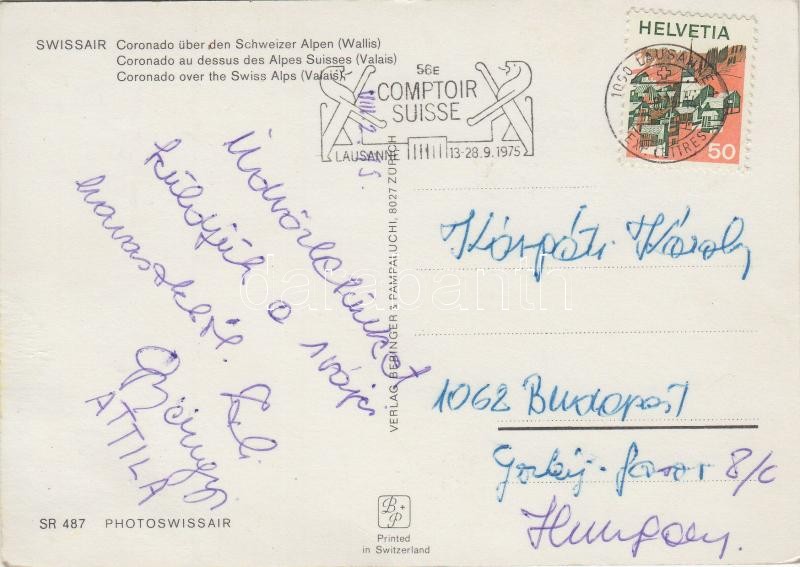 SWISSAIR Coronado über den Schweizer Alpen (Wallis)
Coronado au dessus des Alpes Suisses (Valais)
Coronado over the Swiss Alps (Valais)
56E
COMPTOIR
SUISSE
LAUSANNE 13-28.9.1975
HELVETIA
50
1050 LAUSANNE
VERLAG BERINGER & PAMPALUCHI, 8027 ZÜRICH
Üdvözletünket
küldjük a svájci
havasokból.
ATTILA
Kárpáti Károly
1062 Budapest
Gorkij-fasor 8/c
Hungary.
darabanth
B + P
Printed
in Switzerland
SR 487 PHOTOSWISSAIR